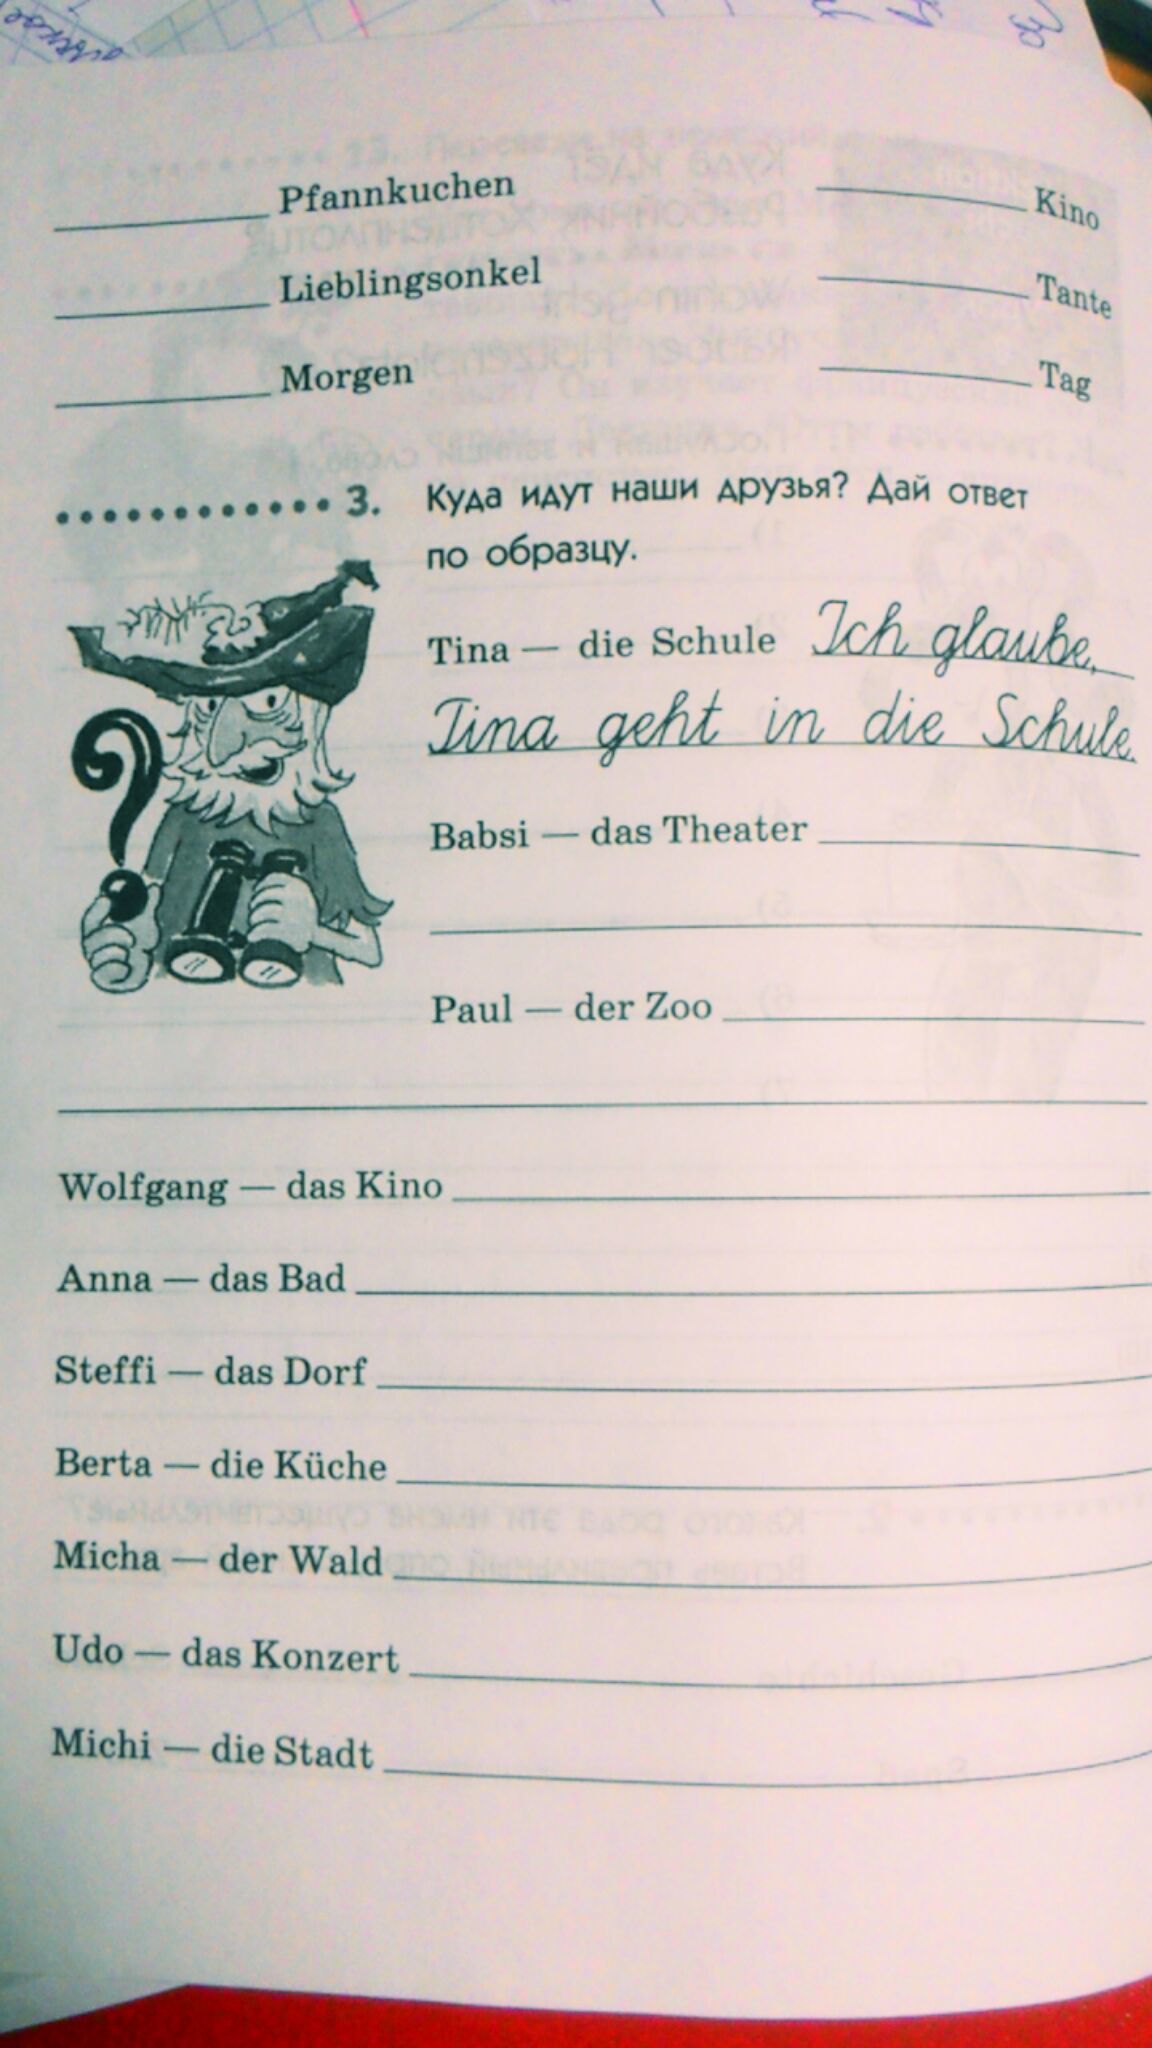 Pfannkuchen Kino
Lieblingsonkel Tante
Morgen Tag
3. Куда идут наши друзья? Дай ответ
по образцу.
Tina — die Schule Ich glaube,
Tina geht in die Schule.
Babsi — das Theater
Paul — der Zoo
Wolfgang — das Kino
Anna — das Bad
Steffi — das Dorf
Berta — die Küche
Micha — der Wald
Udo — das Konzert
Michi — die Stadt